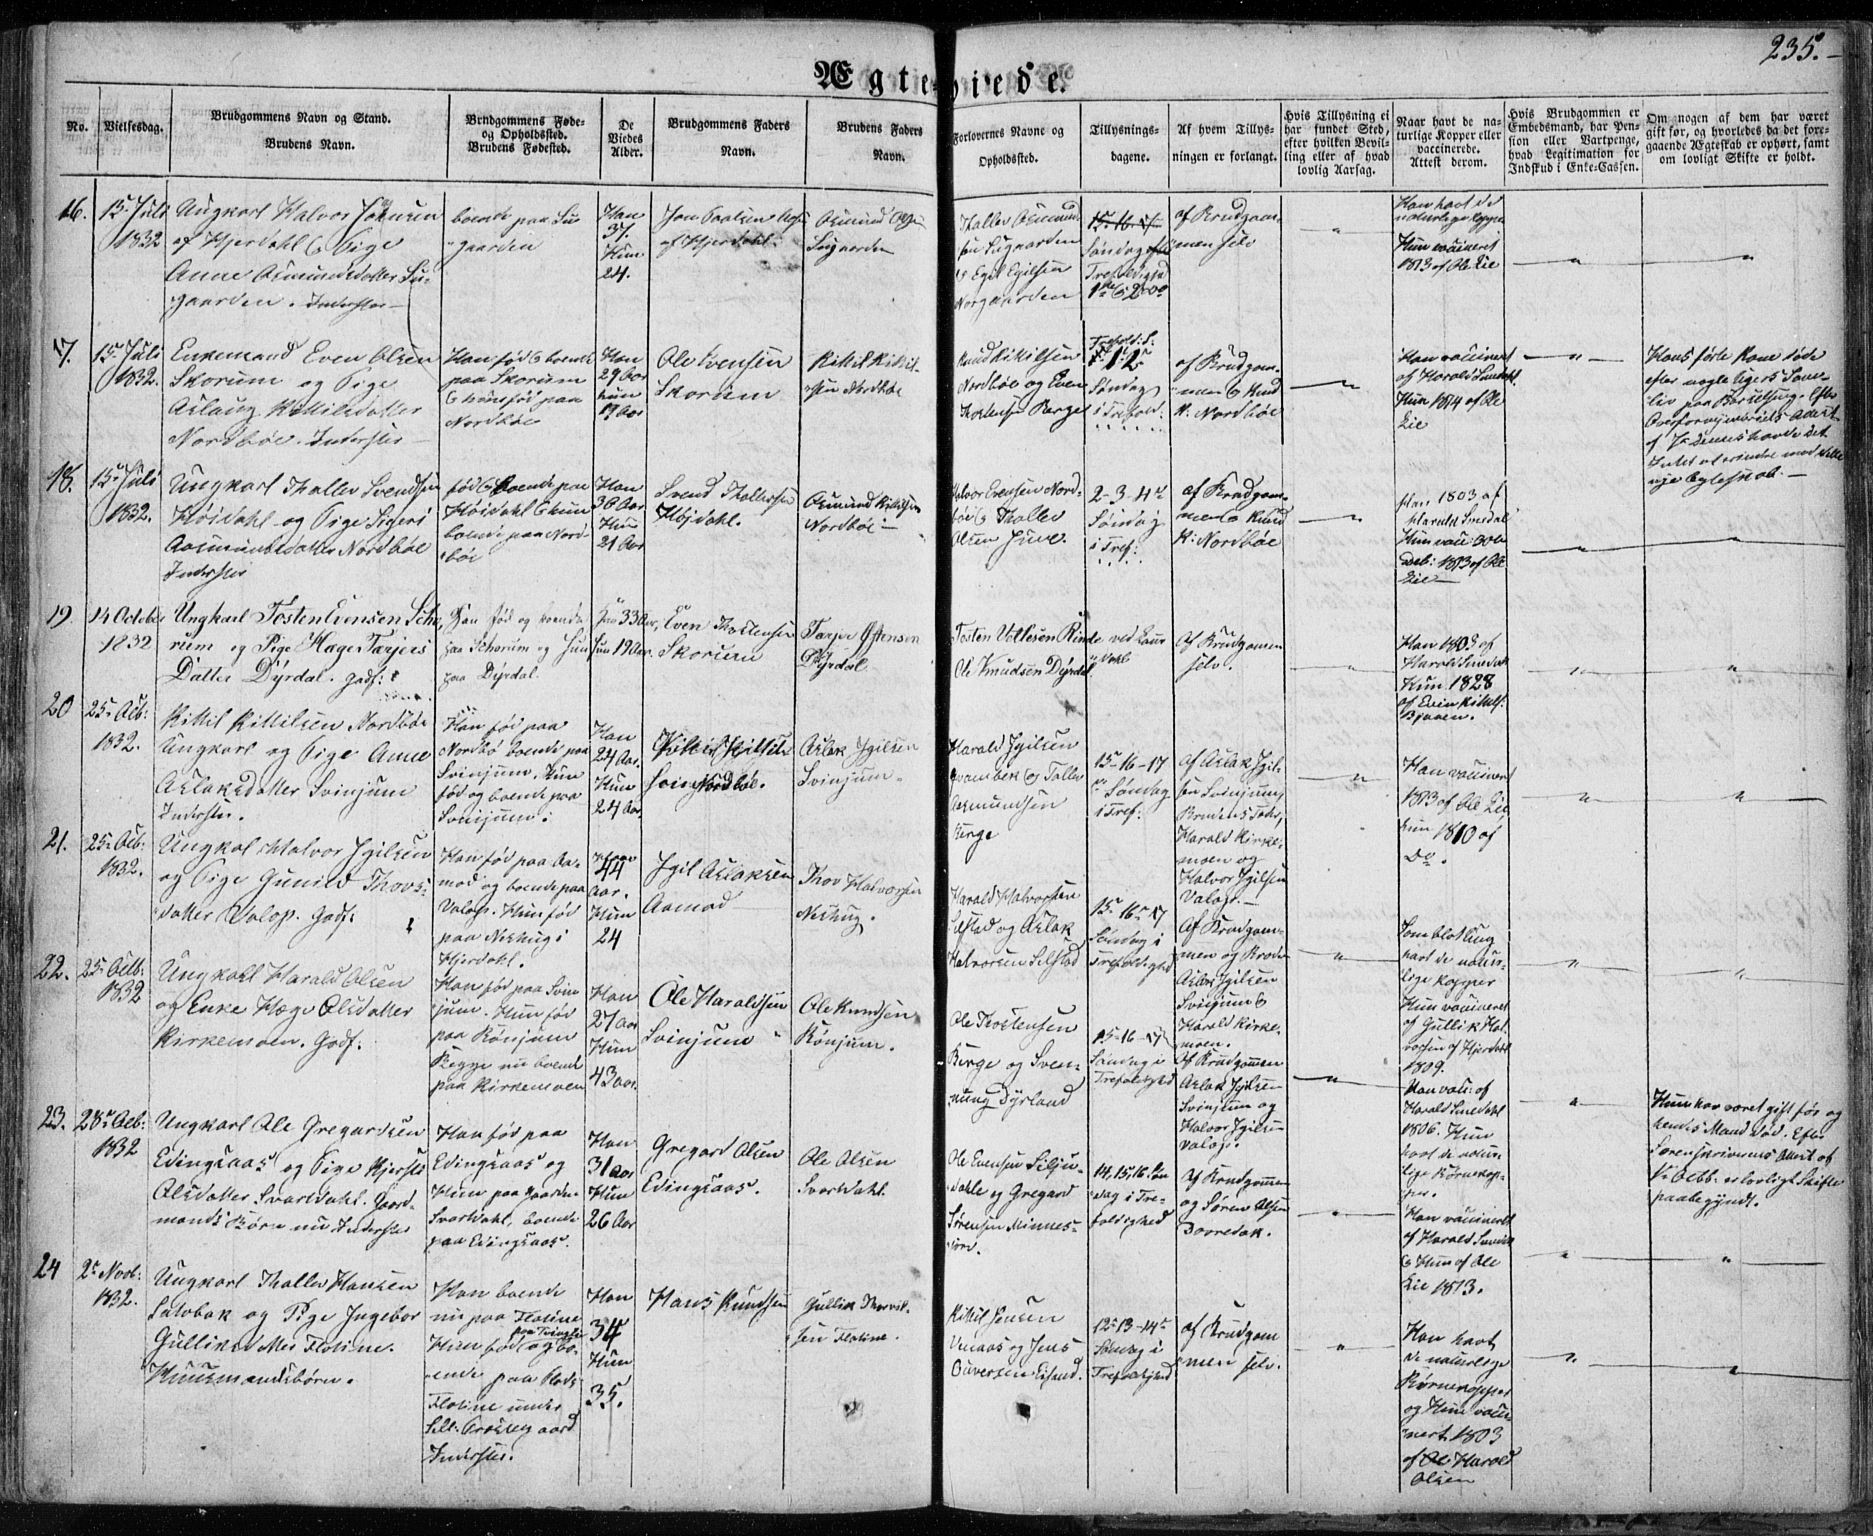 235.
Ægteviede.
No.
Vielsesdag.
Brudgommens Navn og Stand.
Brudens Navn.
Brudgommens Føde-
og Opholdssted.
Brudens Fødested.
De
Viedes
Alder.
Brudgommens Faders
Navn.
Brudens Faders
Navn.
Forlovernes Navne og
Opholdssted.
Tillysnings-
dagene.
Af hvem Tillys-
ningen er forlangt.
Hvis Tillysning ei
har fundet Sted,
efter hvilken Bevil-
ling eller af hvad
lovlig Aarsag.
Naar havt de na-
turlige Kopper eller
vaccinerede.
Attest derom.
Hvis Brudgommen er
Embedsmand, har Pen-
sion eller Vartpenge,
hvad Legitimation for
Indskud i Enke-Cassen.
Om nogen af dem har været
gift før, og hvorledes da det fore-
gaaende Ægteskab er ophørt, samt
om lovligt Skifte er holdt.
16.
15. Juli
1832
Ungkarl Halvor Jonsen
af Hjerdahl & Pige
Anne Asmundsdatter Su-
gaarden. Inderster
boende paa Su-
gaarden
Han
37.
Hun
24.
af Hjerdahl.
Asmund
Sugaarden
Thallev Asmund-
sen Sugaarden
& Egil Egilsen
Norgaarden
Søndag efter
Trefoldighed
af Brudgom-
men selv
Han havt de
naturlige Kopper
Hun vaccineret
1813 af Ole Lie
17.
15. Juli
1832.
Enkemand Even Olsen
Skorum og Pige
Aslaug Kittilsdatter
Nordbøe. Inderster
Han fød & boende
paa Skorum
& hun fød paa
Nordbøe
Han
29 Aar
hun
19 Aar
Ole Evensen
Skorum
Kittil Kittil-
sen Nordbøe
Knud Kittilsen
Nordbøe og Even
Thostensen Berge
Søndag
i Trefold:
af Brudgom-
men & Knud
K. Nordbøe
Han vaccineret
af Harald Smedal
Hun 1814 af Ole
Lie
Hans første Kone døde
efter nogle Tigers Sam-
liv paa Barselseng. Efter
Overformynderiets Attest
af
Intet at erindre mod dette
nye Ægteskab.
18.
15. Juli
1832.
Ungkarl Thallev Svendsen
Høidahl og Pige Sigeri
Aasmundsdatter Nordbøe
Inderster
fød & boende paa
Høidahl & hun
boende paa Nord-
bøe
Han
36 Aar
Hun
21 Aar
Svend Thallevsen
Høidahl.
Asmund Kittilsen
Nordbøe
Halvor Evensen Nord-
bøe & Thallev
Olsen Juve
2-3-4de
Søndag
i Tref:
af Brudgom-
men & Knud
K. Nordbøe
Han 1803 af
Harald Smedal
Hun vacc: 30te
Deb: 1813 af Ole
Lie
19.
14 October
1832
Ungkarl Tosten Evensen Scho-
rum og Pige Hæge Tarjeis
Datter Dyrdal. Gadf:
Han fød og boende
paa Schorum og Hun
paa Dyrdal.
Han 33 Aar,
hun 19 Aar.
Even Thostensen
Skorum
Tarjei Østensen
Dyrdal
Tosten Vetlesen Rinde
Ole Knudsen Dyrdal
ved Laur
Dahl
Af Brudgommen
selv.
Han 1803 af
Harald Smedal
Hun 1828
af Even Kittils.
Bjaaen.
20
25. Octb:
1832.
Kittil Kittilsen Nordbøe
Ungkarl og Pige Anne
Aslaksdatter Svinjum
Inderster.
Han fød paa
Nordbø boende paa
Svinjum, Hun
fød og boende paa
Svinjum.
Han
24 Aar.
Hun
24 Aar.
Nordbøe.
Aslak Jgilsen
Svinjum.
Harald Jgilsen
Qvambek & Tallev
Asmundsen
Berge
15-16-17
Søndag
i Tref:
af Aslak Jgil-
sen Svinjum,
Brudens Fader,
Harald Kirke-
moen og
Halvor Jgilsen
Valop.
Han vaccineret
1813 af Ole Lie
hun 1810 af
Do.
21.
25. Octb:
1832.
Ungkal Halvor Jgilsen
og Pige Gunild Thovs-
datter Valop. Gadf:
Han fød paa Aa-
mod og boende paa
Valop. Hun fød
paa Neshug i
Hjerdahl.
Han
44
Aar.
Hun
24
Jgil Aslaksen
Aamod
Thov Halvorsen
Neshug.
Harald Halvorsen
Selstad og Aslak
Halvorsen Selstad
15-16-17
Søndag i
Trefoldighed
Af Brudgom-
men og
Aslak Jgilsen
Svinjum &
Harald Kirke-
moen.
Som blot Ung
havt de natur-
lige Kopper
Hun vaccineret
af Gullik Hal-
vorsen af Hjerdahl
1809.
22.
25. Octb:
1832
Ungkarl Harald Olsen
og Enke Hæge Olsdatter
Kirkemoen. Gadf:
Han fød paa Svin-
jum. Hun fød
paa Rønjum
Begge nu boende
paa Kirkemoen
Han
27 aar
Hun
43 aar.
Ole Haraldsen
Svinjum
Ole Knudsen
Rønjum.
Ole Thostensen
Berge og Sven-
nung Dyrland
15-16-17
Søndag i
Trefoldighed
Af Brudgommen
Aslak Jgilsen
Svinjum og
Halvor Jgilsen
Valop.
Han vacc: af
Harald Smedahl
1806. Hun
havt de natur-
lige Børnekop-
per.
Hun har været gift før og
hendes Mand død. Efter
Sorenskriverens Attest af
Octb: er lovligt Skifte
paabegyndt.
23.
28. Octb:
1832
Ungkarl Ole Gregardsen
Edingsaas og Pige Kjersti
Olsdatter Svartdahl. Gaard-
mands Børn nu Inderster
Han fød paa
Edingsaas og
Hun paa Gaarden
Svartdahl, boende
paa Edingsaas.
Han
31 aar
Hun
26 Aar
Gregard Olsen
Edingsaas.
Ole Olsen
Svartdahl.
Ole Evensen Silju-
dahle og Gregard
Sørensen Minnes-
14, 15, 16. Søn-
dag i Tre-
foldighed
Af Brudgommen
og Søren Olsen
Han vaccineret
af Harald Smedal
& Hun af Ole
Lie 1813.
24
2. Novb:
1832.
Ungkarl Thallev Hansen
Latobak og Pige Ingebor
Gulliksdatter Flotine.
Huusmandsbørn.
Han boende
nu paa Flotine
Hun fød og bo-
ende paa Plads
Flotine under
Inderster.
Han
34
Hun
35.
Hans Knudsen
Gullik Thorvil-
sen Flotine.
Kittil Jensen
og Jens
12-13-14de
Søndag i
Trefoldighed
af Brudgom-
men selv.
Han havt
de naturlige
Børnekopper
og Hun vacci-
nert 1803
af Harald
Olsen